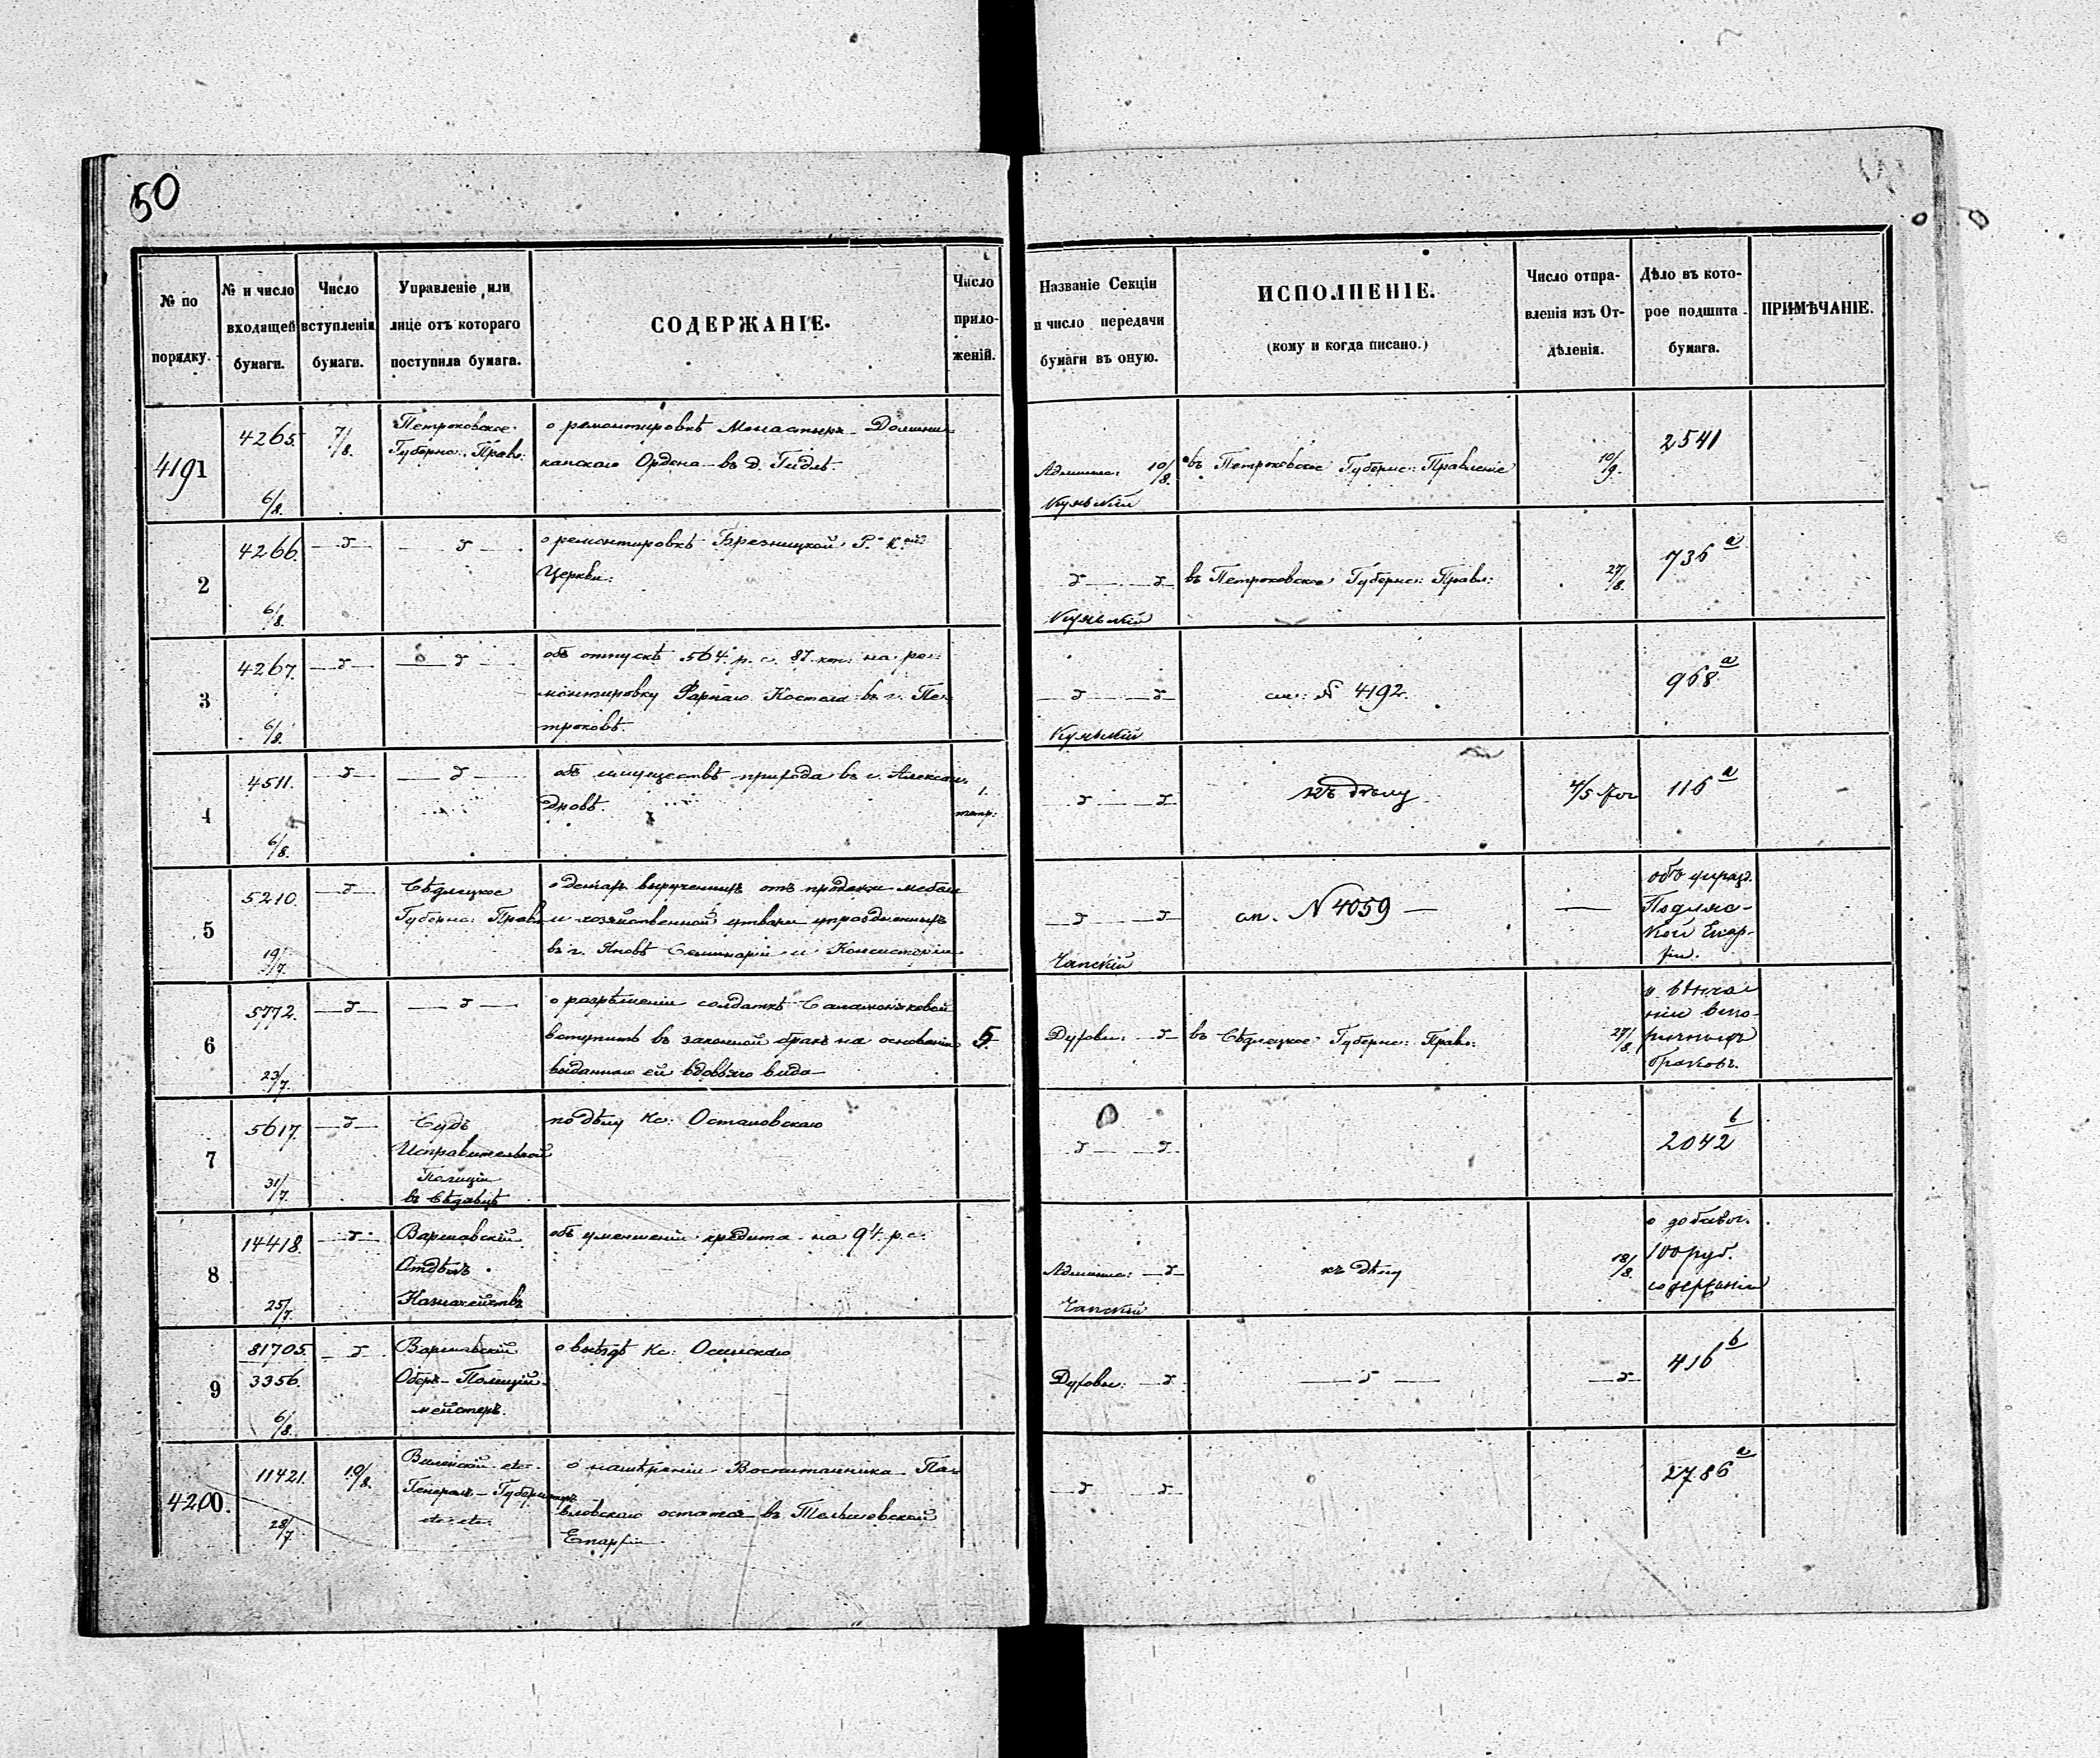 50
№ по порядку.
№ и число входящей бумаги.
Число вступленія бумаги.
Управленіе или лице отъ котораго поступила бумага.
СОДЕРЖАНІЕ.
Число приложеній.
Названіе Секціи и число передачи бумаги въ оную.
ИСПОЛНЕНІЕ.
(кому и когда писано.)
Число отправленія изъ Отдѣленія.
Дѣло въ которое подшита бумага.
ПРИМѢЧАНІЕ.
4191
4265
6/8.
7/8.
Петроковское
Губернс: Правл:
о ремонтировкѣ Монастыря Домини-
канскаго Ордена въ д. Гидлѣ.
Админис: 10/8.
въ Петроковское Губернс: Правленіе
10/9.
2541
2
4266.
6/8.
о ремонтировкѣ Брезницкой Р. К.ой
Церкви.
въ Петроковское Губернс: Правл:
27/8.
736 a
3
4267.
6/8.
объ отпускѣ 564 р. с. 87 коп. на ре-
монтировку Фарнаго Костела въ г. Пе-
троковѣ.
см: № 4192.
968 a
4
4511.
6/8.
объ имуществѣ прихода въ г. Алексан-
дровѣ.
1.
къ дѣлу
116 a
5
5210.
19/7.
Сѣдлецкое
Губернс: Правл:
о деньгахъ вырученныхъ отъ продажи мебели
и хозяйственной утвари упраздненныхъ
въ г. Яновѣ Семинаріи и Консисторіи
Чапскій
см. № 4059
объ упразд.
Подляс-
кой Епар-
хіи.
6
5772.
23/7.
о разрѣшеніи солдаткѣ Саламоняковой
вступить въ законной бракъ на основаніи
выданнаго ей вдовьяго вида
5.
Духовн:
въ Сѣдлецкое Губернс: Правл:
27/8.
о вѣнча-
ніи
браковъ.
7
5617.
31/7.
Судъ
Исправительной
Полиціи
въ Сѣдльцѣ
по дѣлу Кс: Остановскаго
2042 b
8
14418.
25/7.
Варшавскій
Отдѣлъ
Казначействъ
объ уменьшеніи кредита на 94 р. с.
Админис:
Чапскій
къ дѣлу
18/8.
о добавоч.
100 руб.
содержаніи
9
81705.
3356.
6/8.
Варшавскій
Оберъ-Полицій-
мейстеръ.
о выѣздѣ Кс: Осинскаго
Духовн:
416 b
4200.
11421.
28/7
10/8.
Виленскій etc.
Генералъ-Губернаторъ
etc: etc:
о намѣреніи Воспитанника Па-
вловскаго остаться въ Тельшевской
Епархіи
2786 a